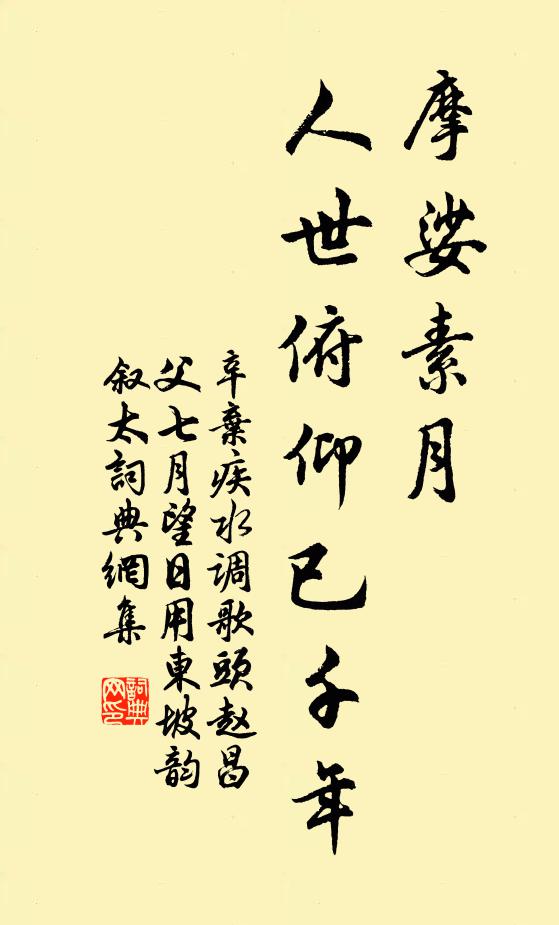 摩娑素月
人世俯仰已千年
辛棄疾水调歌頭赵昌
父七月望日用東坡韵
叙太詞典網集
詞典网印